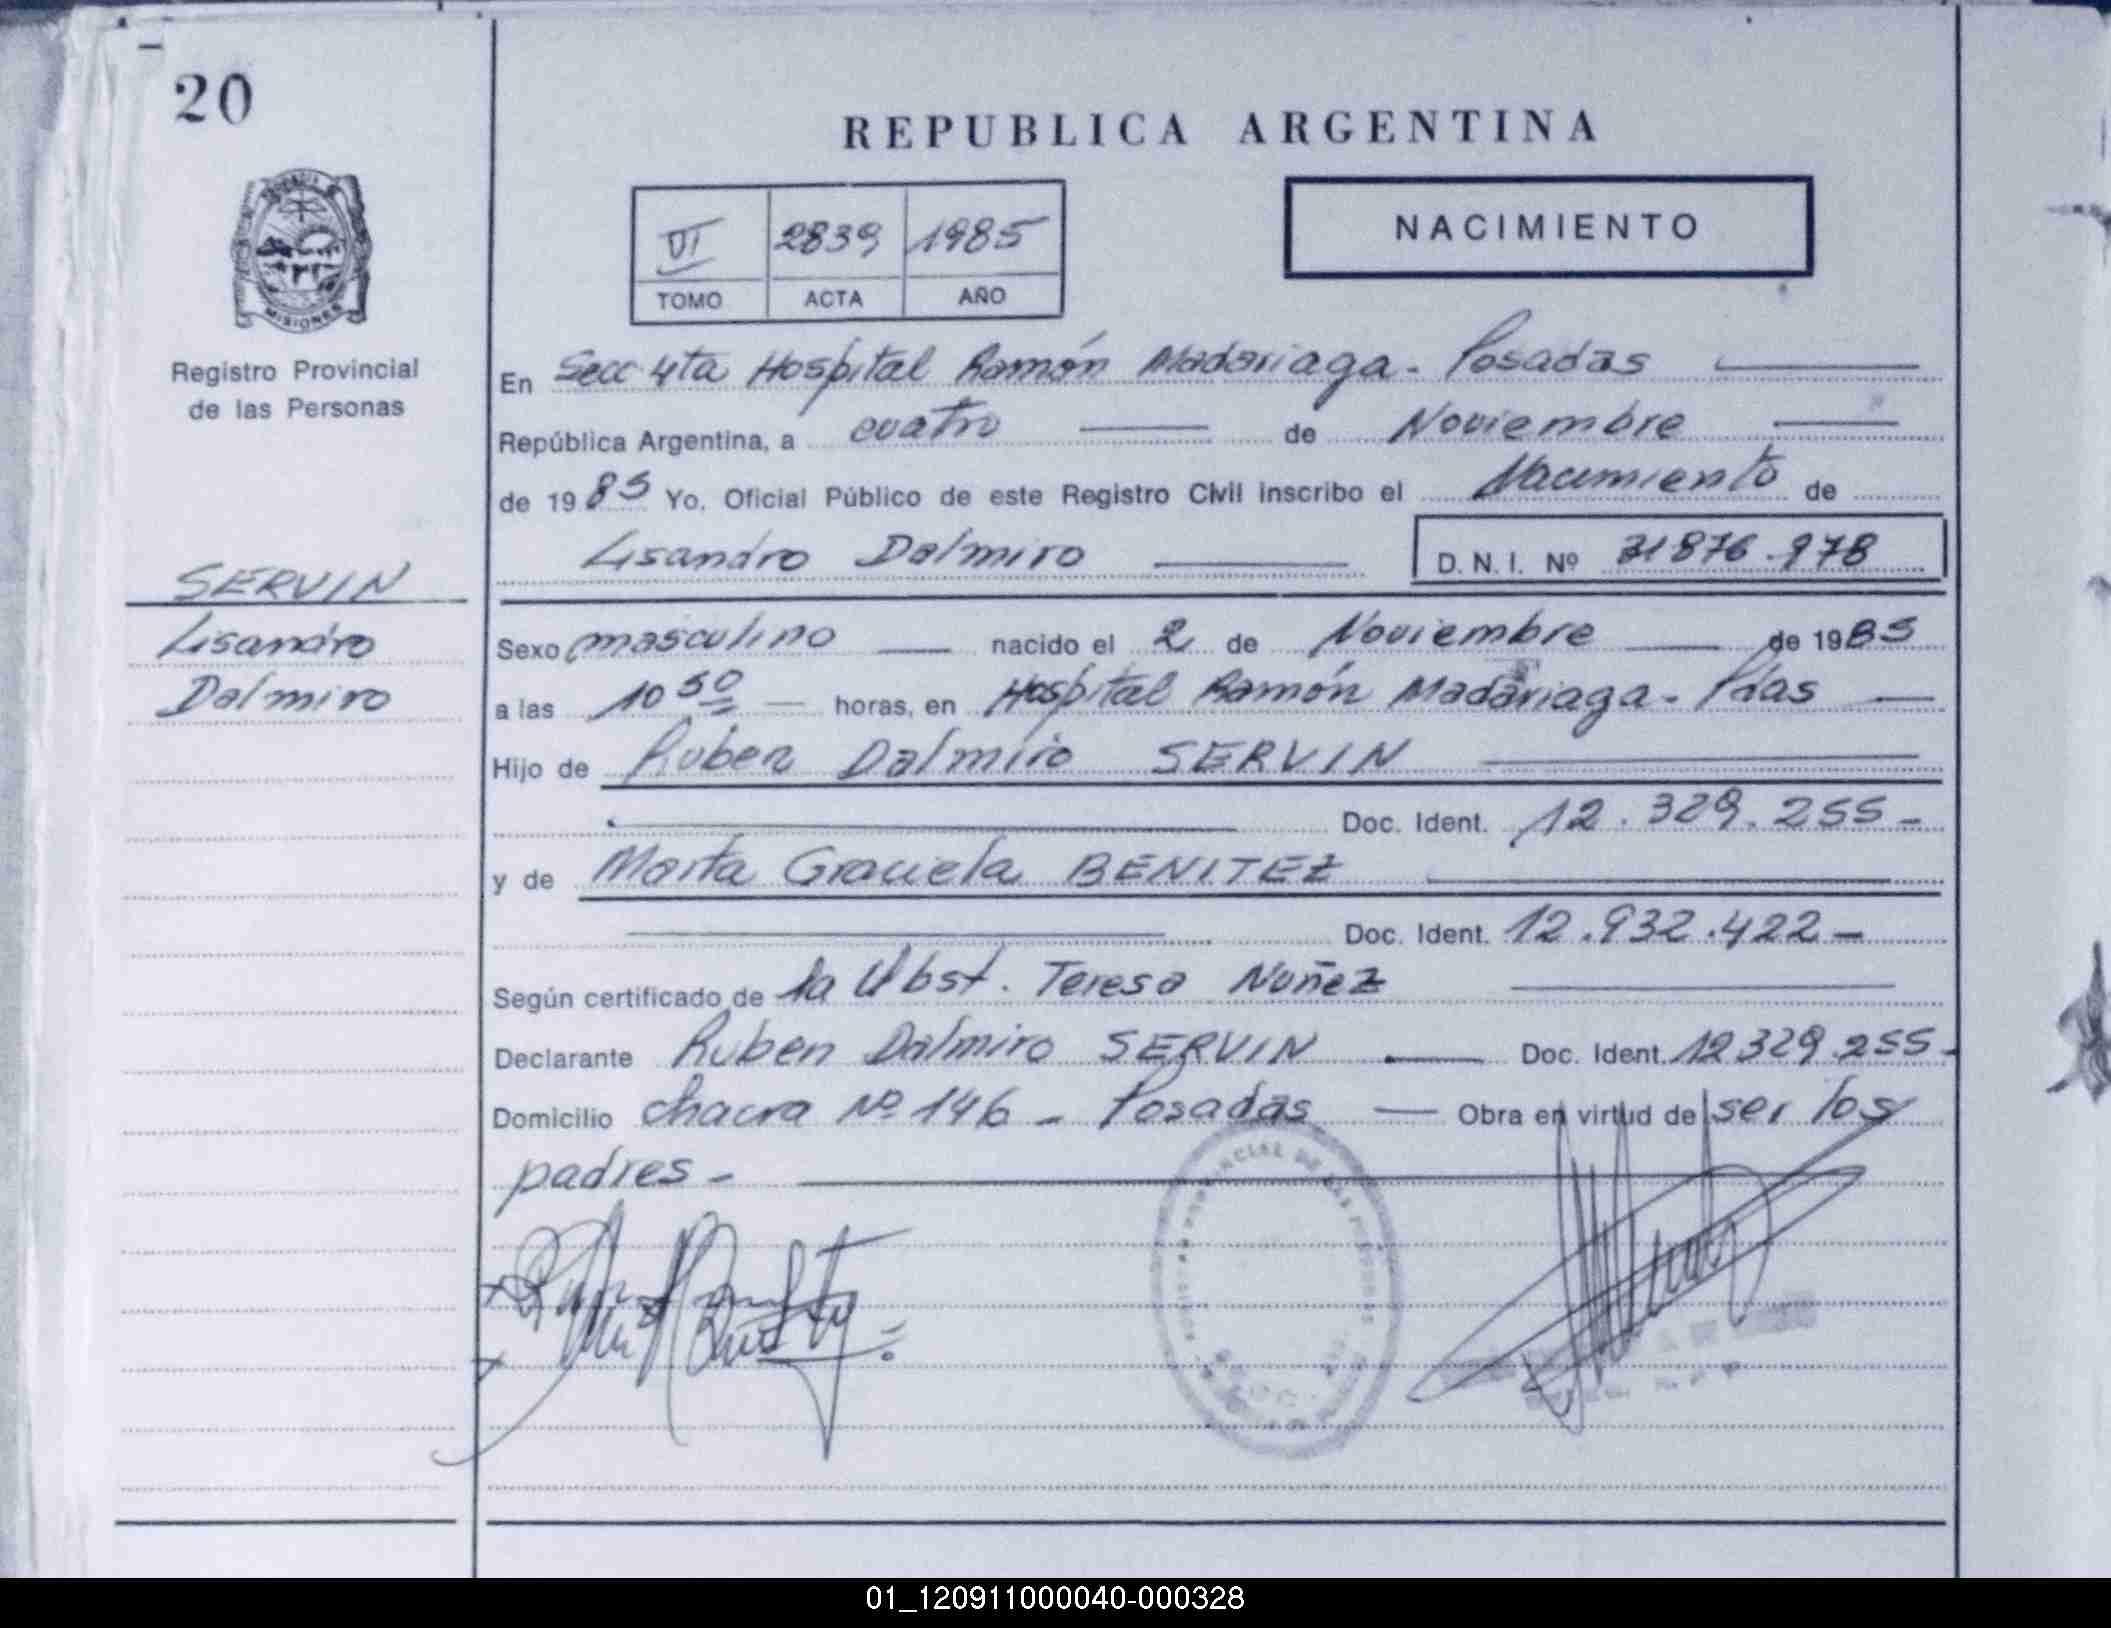 20
REPUBLICA ARGENTINA
NACIMIENTO
VI 2839 1985
TOMO ACTA AÑO
MISIONES
Registro Provincial
de las Personas
SERVIN
Lisandro
Dalmiro
En Secc 4ta Hospital Ramón Madariaga - Posadas
República Argentina, a cuatro de Noviembre
de 1985 Yo, Oficial Público de este Registro Civil inscribo el Nacimiento de
Lisandro Dalmiro D.N.I. Nº 31876.978
Sexo masculino nacido el 2 de Noviembre de 1985
a las 10 50 horas, en Hospital Ramón Madariaga - Pdas
Hijo de Ruben Dalmiro SERVIN
Doc. Ident. 12.329.255-
y de Marta Graciela BENITEZ
Doc. Ident. 12.932.422-
Según certificado de la Obst. Teresa Nuñez
Declarante Ruben Dalmiro SERVIN Doc. Ident. 12329.255-
Domicilio chacra Nº 146 - Posadas Obra en virtud de ser los
padres -
01_120911000040-000328